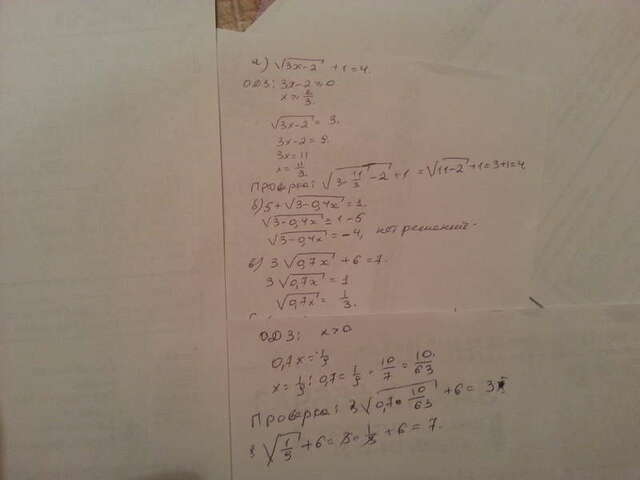 а) √3x-2 +1=4.
ОДЗ: 3x-2≥0
x≥2/3.
√3x-2 = 3.
3x-2=9.
3x=11
x=11/3.
Проверка: √3·11/3-2 +1 = √11-2 +1=3+1=4
б) 5+√3-0,4x =1.
√3-0,4x = 1-5
√3-0,4x = -4, нет решений.
в) 3√0,7x +6=7.
3√0,7x = 1
√0,7x = 1/3.
ОДЗ: x>0
0,7x=1/9
x=1/9:0,7=1/9·10/7=10/63
Проверка: 3√0,7·10/63 +6=
3√1/9 +6=3·1/3+6=7.